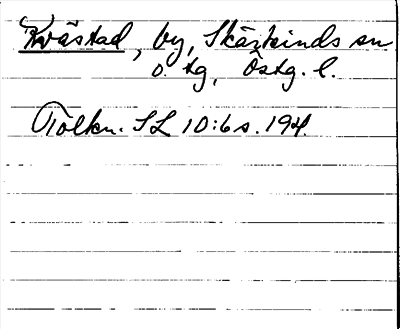 Kvästad, by, Skärkinds sn
o. tg, Östg. l.
Tolkn. SL 10:6 s. 194.